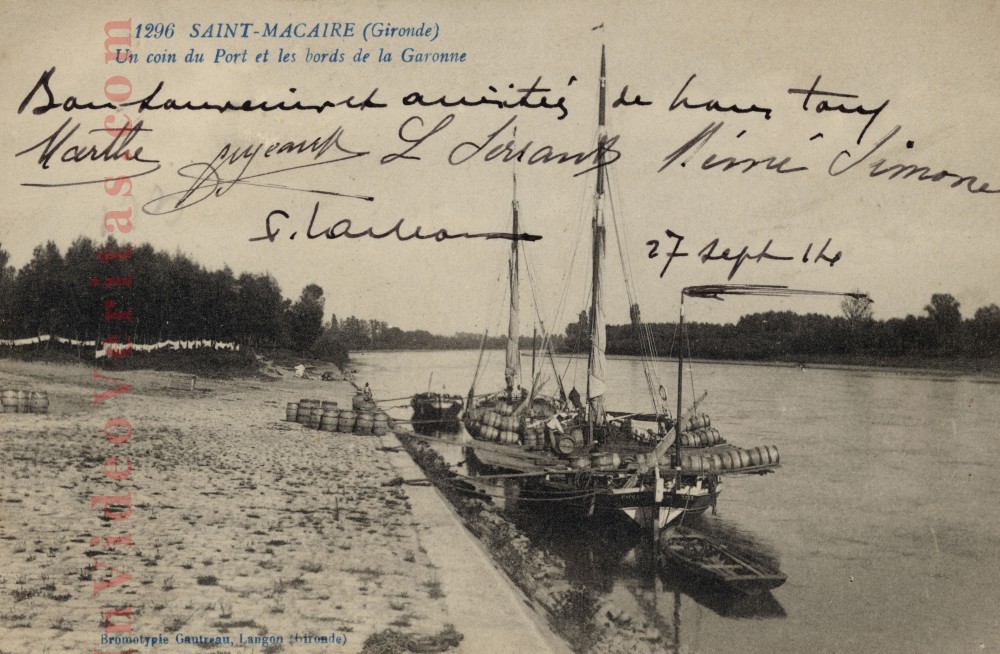 1296 SAINT-MACAIRE (Gironde)
Un coin du Port et les bords de la Garonne
Bon souvenir et amitiés de nous tous
Marthe L Serrant Rémé Simone
27 Sept 14
Bromotypie Gautreau, Langon (Gironde)
In Video Veritas.com